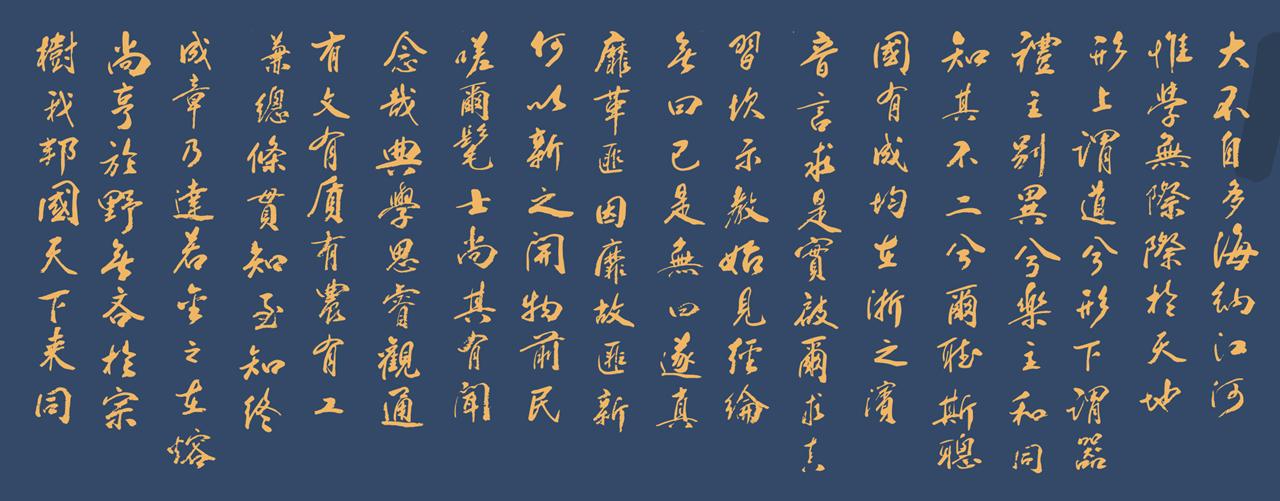 大不自多海納江河
惟學無際際於天地
形上謂道兮形下謂器
禮主別異兮樂主和同
知其不二兮爾聽斯聰
國有成均在浙之濱
昔言求是實啟爾求真
習坎示教始見經綸
無曰已是無曰遂真
靡革匪因靡故匪新
何以新之開物前民
嗟爾髦士尚其有聞
念哉典學思睿觀通
有文有質有農有工
兼總條貫知至知終
成章乃達若金之在熔
尚亨於野無吝於宗
樹我邦國天下來同